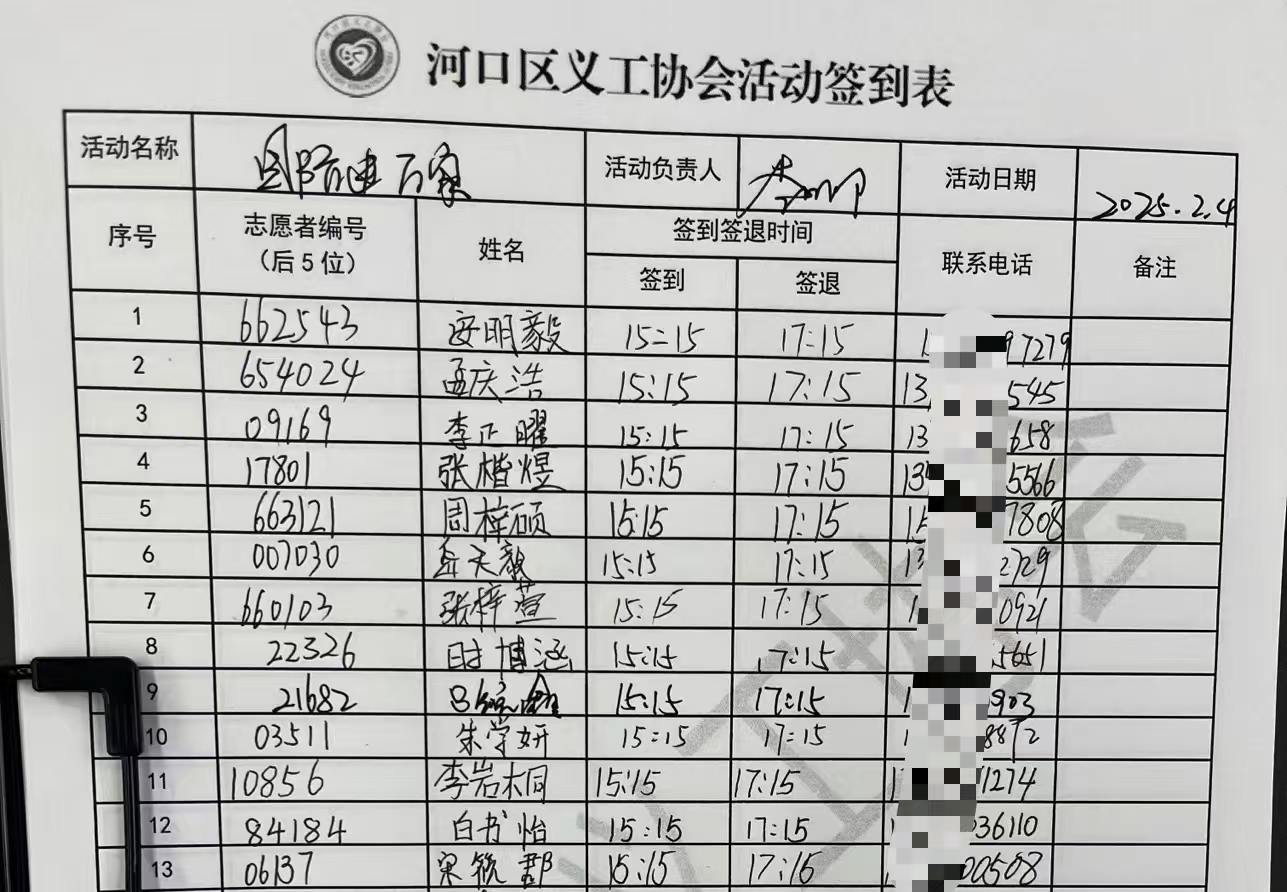 河口区义工协会活动签到表
活动名称 国防进万家 活动负责人 活动日期 2025.2.4
序号 志愿者编号（后5位） 姓名 签到签退时间 联系电话 备注
签到 签退
1 662543 安明毅 15:15 17:15 1 97279
2 654024 孟庆浩 15:15 17:15 13 545
3 09169 李正曜 15:15 17:15 13 658
4 17801 张楷煜 15:15 17:15 13 5566
5 663121 周梓硕 15:15 17:15 15 7808
6 007030 岳天毅 15:15 17:15 13 2729
7 660103 张梓萱 15:15 17:15 1 0921
8 22326 时博涵 15:15 17:15 1 5651
9 21682 吕 15:15 17:15 1 903
10 03511 朱学妍 15:15 17:15 1 8872
11 10856 李岩桐 15:15 17:15 1 1274
12 84184 白书怡 15:15 17:15 1 036110
13 06137 15:15 17:15 00508
义工协会